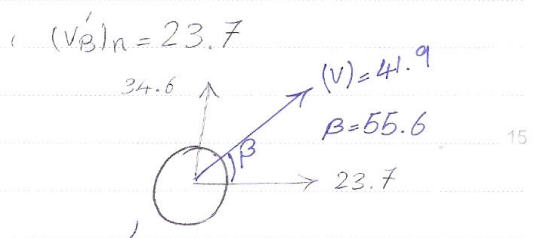 (V'B)n = 23.7
34.6
(V) = 41.9
β = 55.6
15
β
23.7